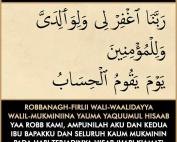 رَبَّنَا اغْفِرْ لِي وَلِوَالِدَيَّ
وَلِلْمُؤْمِنِينَ
يَوْمَ يَقُومُ الْحِسَابُ
ROBBANAGH-FIRLII WALI-WAALIDAYYA
WALIL-MUKMINIINA YAUMA YAQUUMUL HISAAB
YAA ROBB KAMI, AMPUNILAH AKU DAN KEDUA
IBU BAPAKKU DAN SELURUH KAUM MUKMININ